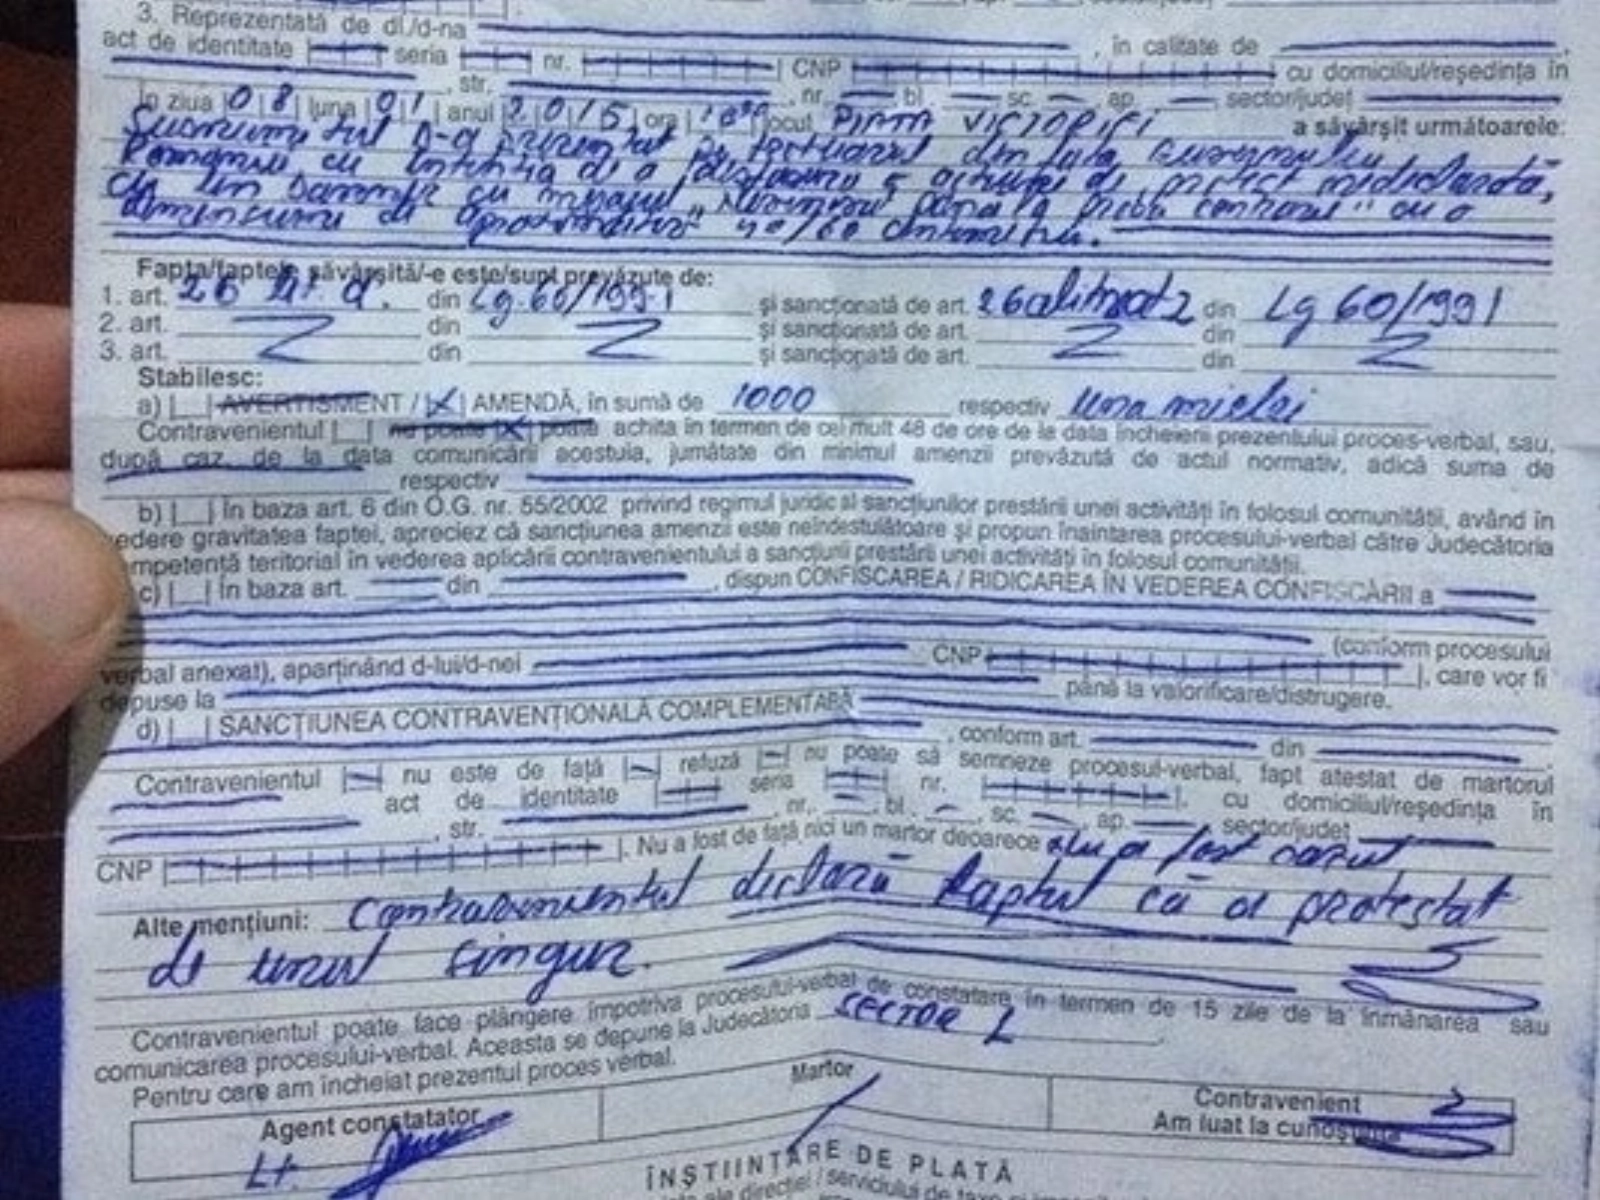 3. Reprezentată de dl./d-na , în calitate de ,
act de identitate seria nr. CNP cu domiciliul/reședința în
, str. , nr. bl. sc. , ap. , sector/județ
În ziua 08 luna 01 anul 2015 ora locul PIAȚA VICTORIEI a săvârșit următoarele:
Susnumitul s-a prezentat pe trotuarul din fața Guvernului
României cu intenția de a desfășura o acțiune de protest nedeclarată,
cu un banner cu mesajul " până la proba contrarie" cu o
dimensiune de aproximativ 40/60 centimetri.
Fapta/faptele săvârșită/-e este/sunt prevăzute de:
1. art. 26 lit. d. din Lg. 60/1991 și sancționată de art. 26 din Lg 60/1991
2. art. din și sancționată de art. din
3. art. din și sancționată de art. din
Stabilesc:
a) AVERTISMENT / X AMENDĂ, în sumă de 1000 respectiv una mie lei
Contravenientul nu poate X poate achita în termen de cel mult 48 de ore de la data încheierii prezentului proces-verbal, sau,
după caz, de la data comunicării acestuia, jumătate din minimul amenzii prevăzută de actul normativ, adică suma de
respectiv
b) În baza art. 6 din O.G. nr. 55/2002 privind regimul juridic al sancțiunilor prestării unei activități în folosul comunității, având în
edere gravitatea faptei, apreciez că sancțiunea amenzii este neîndestulătoare și propun înaintarea procesului-verbal către Judecătoria
mpetentă teritorial în vederea aplicării contravenientului a sancțiunii prestării unei activități în folosul comunității.
c) În baza art. din , dispun CONFISCAREA / RIDICAREA ÎN VEDEREA CONFISCĂRII a
(conform procesului
verbal anexat), aparținând d-lui/d-nei CNP , care vor fi
depuse la până la valorificare/distrugere.
d) SANCȚIUNEA CONTRAVENȚIONALĂ COMPLEMENTARĂ
, conform art. din
Contravenientul nu este de față refuză nu poate să semneze procesul-verbal, fapt atestat de martorul
act de identitate seria nr. , cu domiciliul/reședința în
, str. , nr. , bl. , sc. , ap. sector/județ
CNP . Nu a fost de față nici un martor deoarece nu a fost cazul
Alte mențiuni: Contravenientul declară faptul că a protestat
de unul singur.
Contravenientul poate face plângere împotriva procesului-verbal de constatare în termen de 15 zile de la înmânarea sau
comunicarea procesului-verbal. Aceasta se depune la Judecătoria SECTOR 1
Pentru care am încheiat prezentul proces verbal.
Agent constatator Martor Contravenient
Am luat la cunoștință
Lt.
ÎNȘTIINȚARE DE PLATĂ